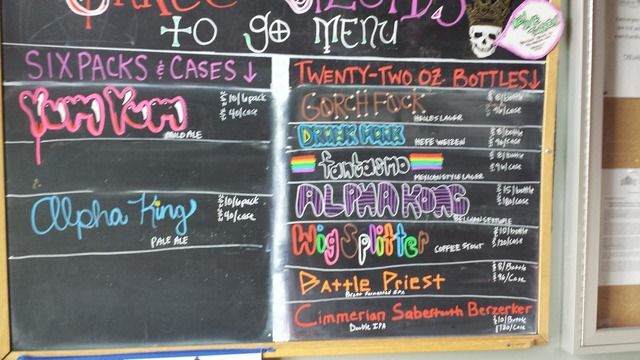 TO GO MENU
SIX PACKS & CASES ↓
Yum Yum
MILD ALE
10/6pack
40/case
Alpha King
PALE ALE
10/6pack
40/case
TWENTY-TWO OZ. BOTTLES ↓
GORCH FOCK
HELLES LAGER
8/bottle
96/case
HEFE WEIZEN
8/bottle
96/case
fantasmo
MEXICAN STYLE LAGER
8/bottle
96/case
ALPHA KONG
15/bottle
180/case
WigSplitter
COFFEE STOUT
10/bottle
120/case
Battle Priest
IPA
8/Bottle
96/Case
Cimmerian Sabertooth Berzerker
Double IPA
10/Bottle
120/Case